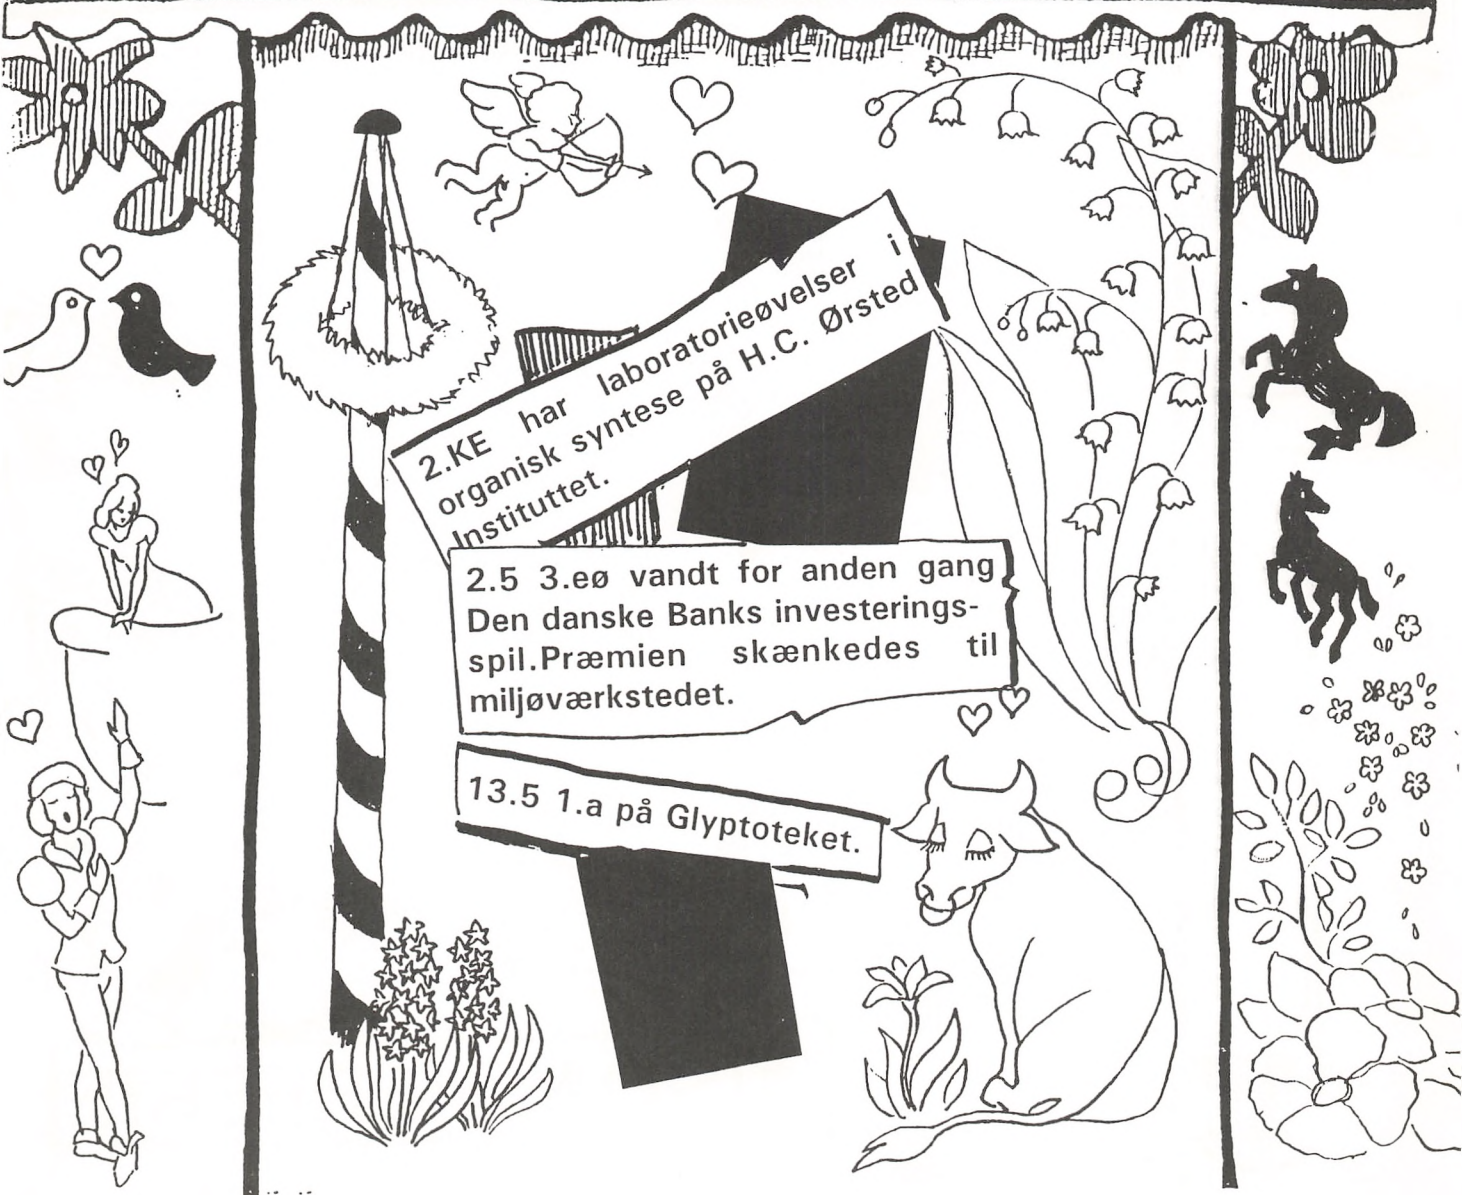 2.KE har laboratorieøvelser i
organisk syntese på H.C. Ørsted
Instituttet.
2.5 3.eø vandt for anden gang
Den danske Banks investerings-
spil.Præmien skænkedes til
miljøværkstedet.
13.5 1.a på Glyptoteket.